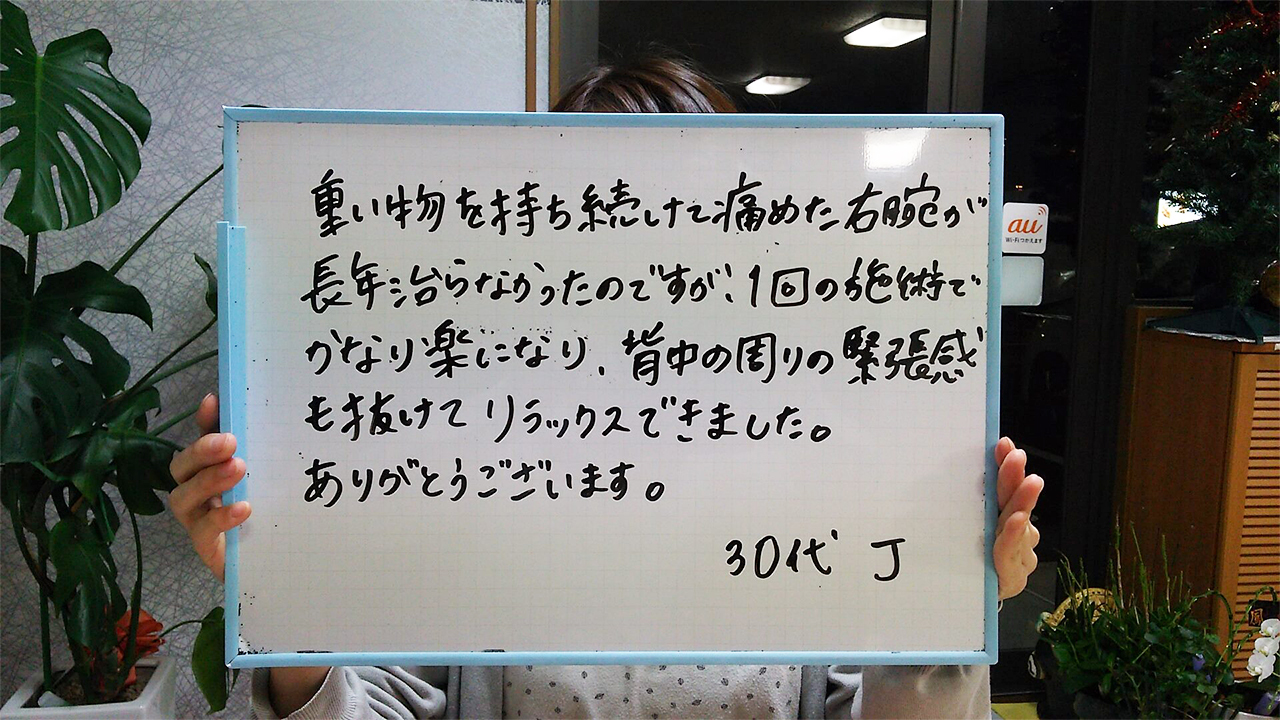 重い物を持ち続けて痛めた右腕が
長年治らなかったのですが、1回の施術で
かなり楽になり、背中の周りの緊張感
も抜けてリラックスできました。
ありがとうございます。
30代 J
au
Wi-Fiつかえます